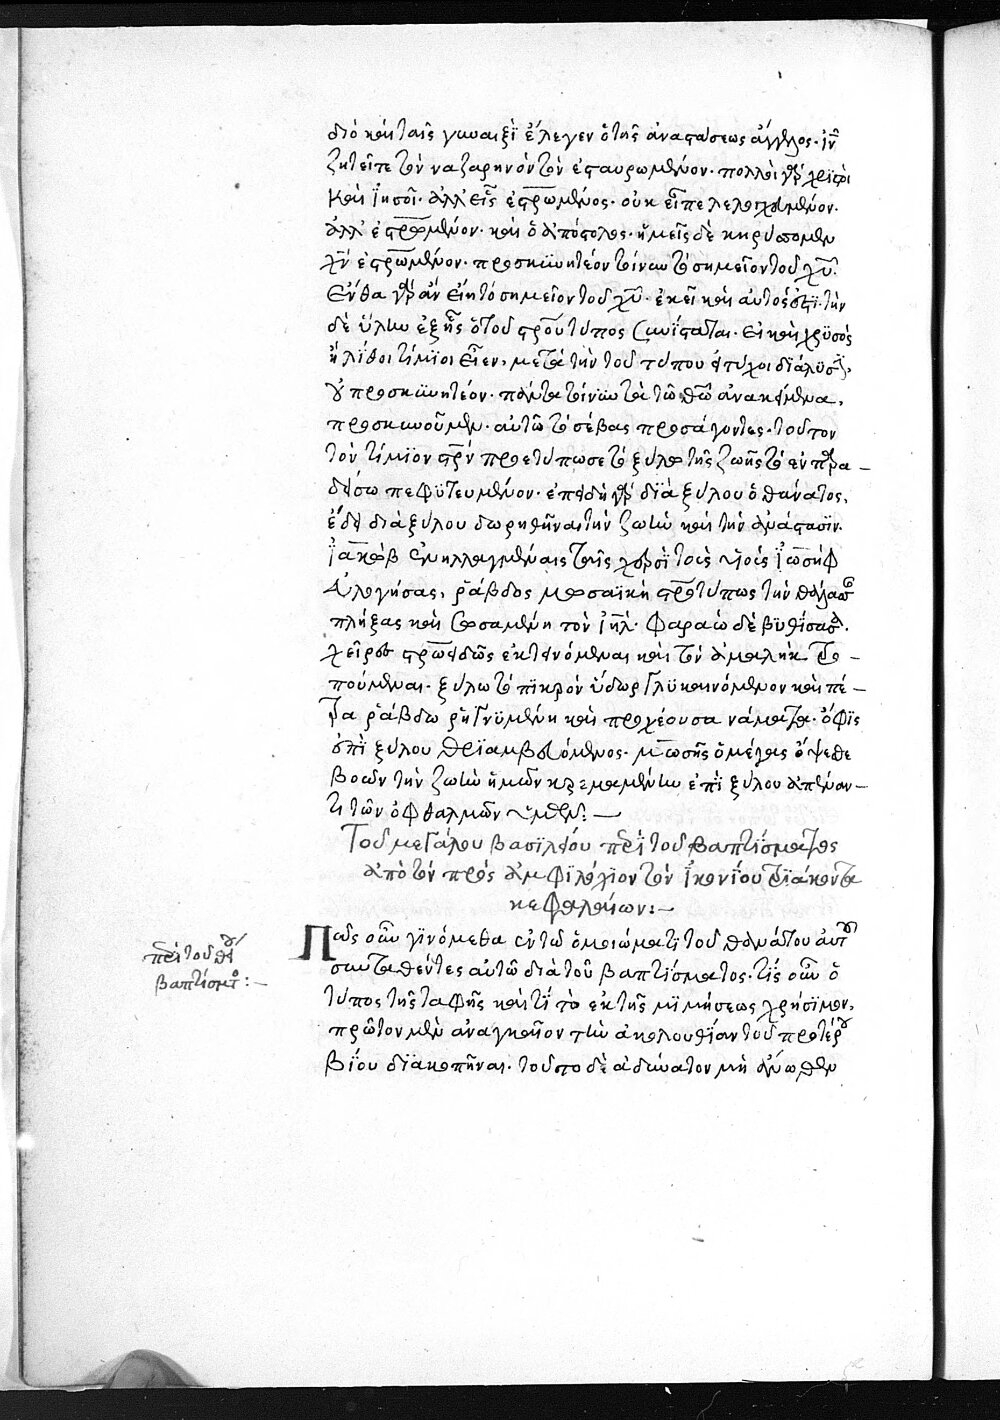 διὸ καὶ ταῖς γυναιξὶ ἔλεγεν ὁ τῆς ἀναστάσεως ἄγγελος· ἰν̅
ζητεῖτε τὸν ναζαρηνὸν τὸν ἐσταυρωμένον· πολλοὶ γὰρ χριστοὶ
καὶ ἰησοῖ· ἀλλ' εἷς ἐσταυρωμένος· οὐκ εἶπε λελογχωμένον·
ἀλλ' ἐσταυρωμένον· καὶ ὁ ἀπόστολος· ἡμεῖς δὲ κηρύττομεν
χν̅ ἐσταυρωμένον· προσκυνητέον τοίνυν τὸ σημεῖον τοῦ χυ̅·
ἔνθα γὰρ ἂν εἴη τὸ σημεῖον τοῦ χυ̅· ἐκεῖ καὶ αὐτὸς ἔσται· τὴν
δὲ ὕλην ἐξ ἧς ὁ τοῦ σταυροῦ τύπος συνίσταται· εἰ καὶ χρυσὸς
ἢ λίθοι τίμιοι εἶεν, μετὰ τὴν τοῦ τύπου εἰ τύχοι διάλυσιν,
οὐ προσκυνητέον· πάντα τοίνυν τὰ τῶ θῶ ἀνακείμενα,
προσκυνοῦμεν· αὐτῶ τὸ σέβας προσάγοντες· τοῦτον
τὸν τίμιον σταυρὸν προετύπωσε τὸ ξύλον τῆς ζωῆς τὸ ἐν παρα-
δείσω πεφυτευμένον· ἐπειδὴ γὰρ διὰ ξύλου ὁ θάνατος,
ἔδει διὰ ξύλου δωρηθῆναι τὴν ζωὴν καὶ τὴν ἀνάστασιν·
ἰακὼβ ἐνηλλαγμέναις ταῖς χερσὶ τοὺς υἱοὺς ἰωσὴφ
εὐλογήσας, ῥάβδος μωσαϊκὴ σταυροτύπως τὴν θάλασσαν
πλήξασα καὶ σώσαμένη τὸν ιηλ̅· φαραὼ δὲ βυθίσασα·
χεῖρες σταυροειδῶς ἐκτεινόμεναι καὶ τὸν ἀμαλὴκ τρο-
πούμεναι· ξύλω τὸ πικρὸν ὕδωρ γλυκαινόμενον καὶ πέ-
τρα ῥάβδω ῥηγνυμένη καὶ προχέουσα νάματα· ὄφις
ἐπὶ ξύλου θριαμβευόμενος· μωσῆς ὁ μέγας ὄψεσθε
βοῶν τὴν ζωὴν ἡμῶν κρεμαμένην ἐπὶ ξύλου ἀπέναν-
τι τῶν ὀφθαλμῶν ὑμῶν:—
Τοῦ μεγάλου βασιλείου περὶ τοῦ βαπτίσματος
ἀπὸ τῶν πρὸς ἀμφιλόχιον τὸν ἰκονίου τριάκοντα
κεφαλαίων:—
Πῶς οὖν γινόμεθα ἐν τῶ ὁμοιώματι τοῦ θανάτου αὐτοῦ
συνταφέντες αὐτῶ διὰ τοῦ βαπτίσματος· τίς οὖν ὁ
τύπος τῆς ταφῆς καὶ τί τὸ ἐκ τῆς μιμήσεως χρήσιμον,
πρῶτον μὲν ἀναγκαῖον τὴν ἀκολουθίαν τοῦ προτέρου
βίου διακοπῆναι· τοῦτο δὲ ἀδύνατον μὴ ἄνωθεν
περὶ τοῦ θείου
βαπτίσματος:—